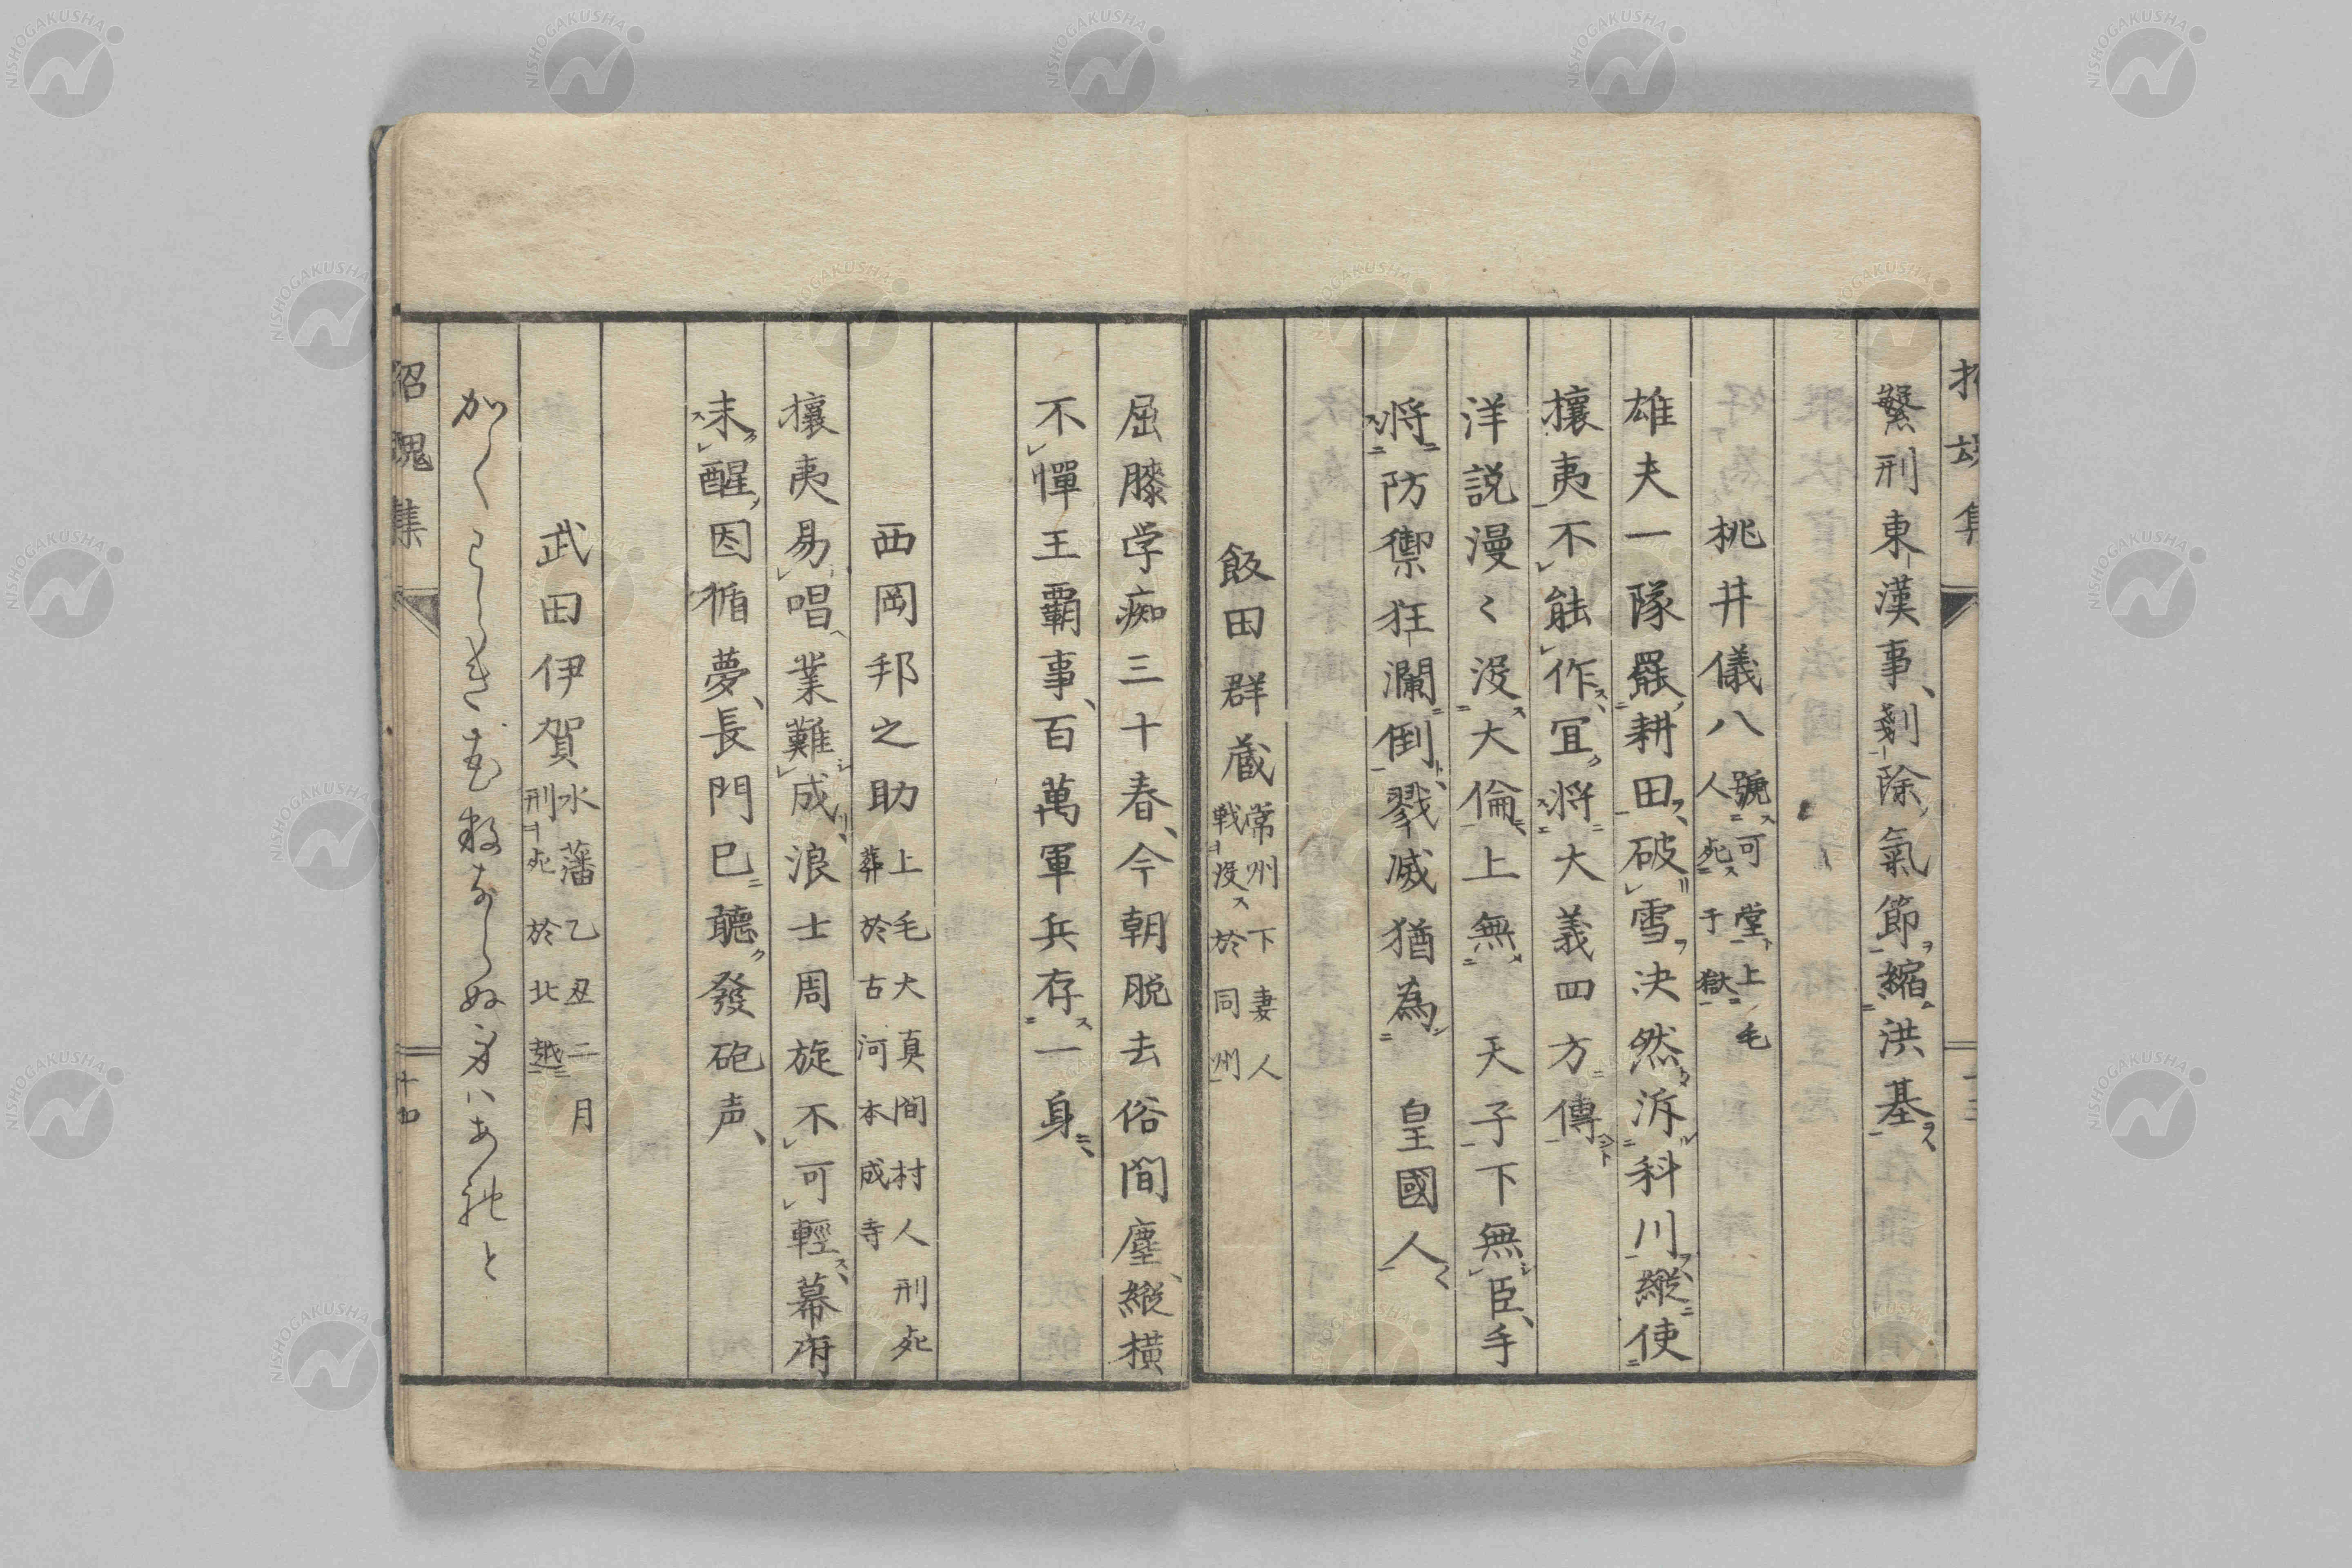 繄刑東漢事、剗除氣節ヲ縮洪基ヲ
桃井儀八 號可堂ト上毛
人死ス于獄
雄夫一隊罷耕田ヲ、破雪ヲ決然泝科川ヲ、縦使
攘夷不能作ス、宜ク将ニ大義四方ニ傳
洋説漫〻没ス大倫ニ、上無天子下無臣、手
将ニ防禦狂瀾倒ト、戮滅猶為皇國人
飯田群蔵 常州下妻人
戦没ス於同州
屈膝学痴三十春、今朝脱去俗間塵、縦横
不憚王覇事、百萬軍兵存ス一身ニ、
西岡邦之助 上毛大真間村人刑死
葬於古河本成寺
攘夷易唱業難成リ、浪士周旋不可輕ス、幕府
未醒因循夢、長門已ニ聽ク發砲声、
武田伊賀 水藩乙丑二月
刑死於北越
かくくるしき色数ならぬ身ハあれと
招魂集
十四